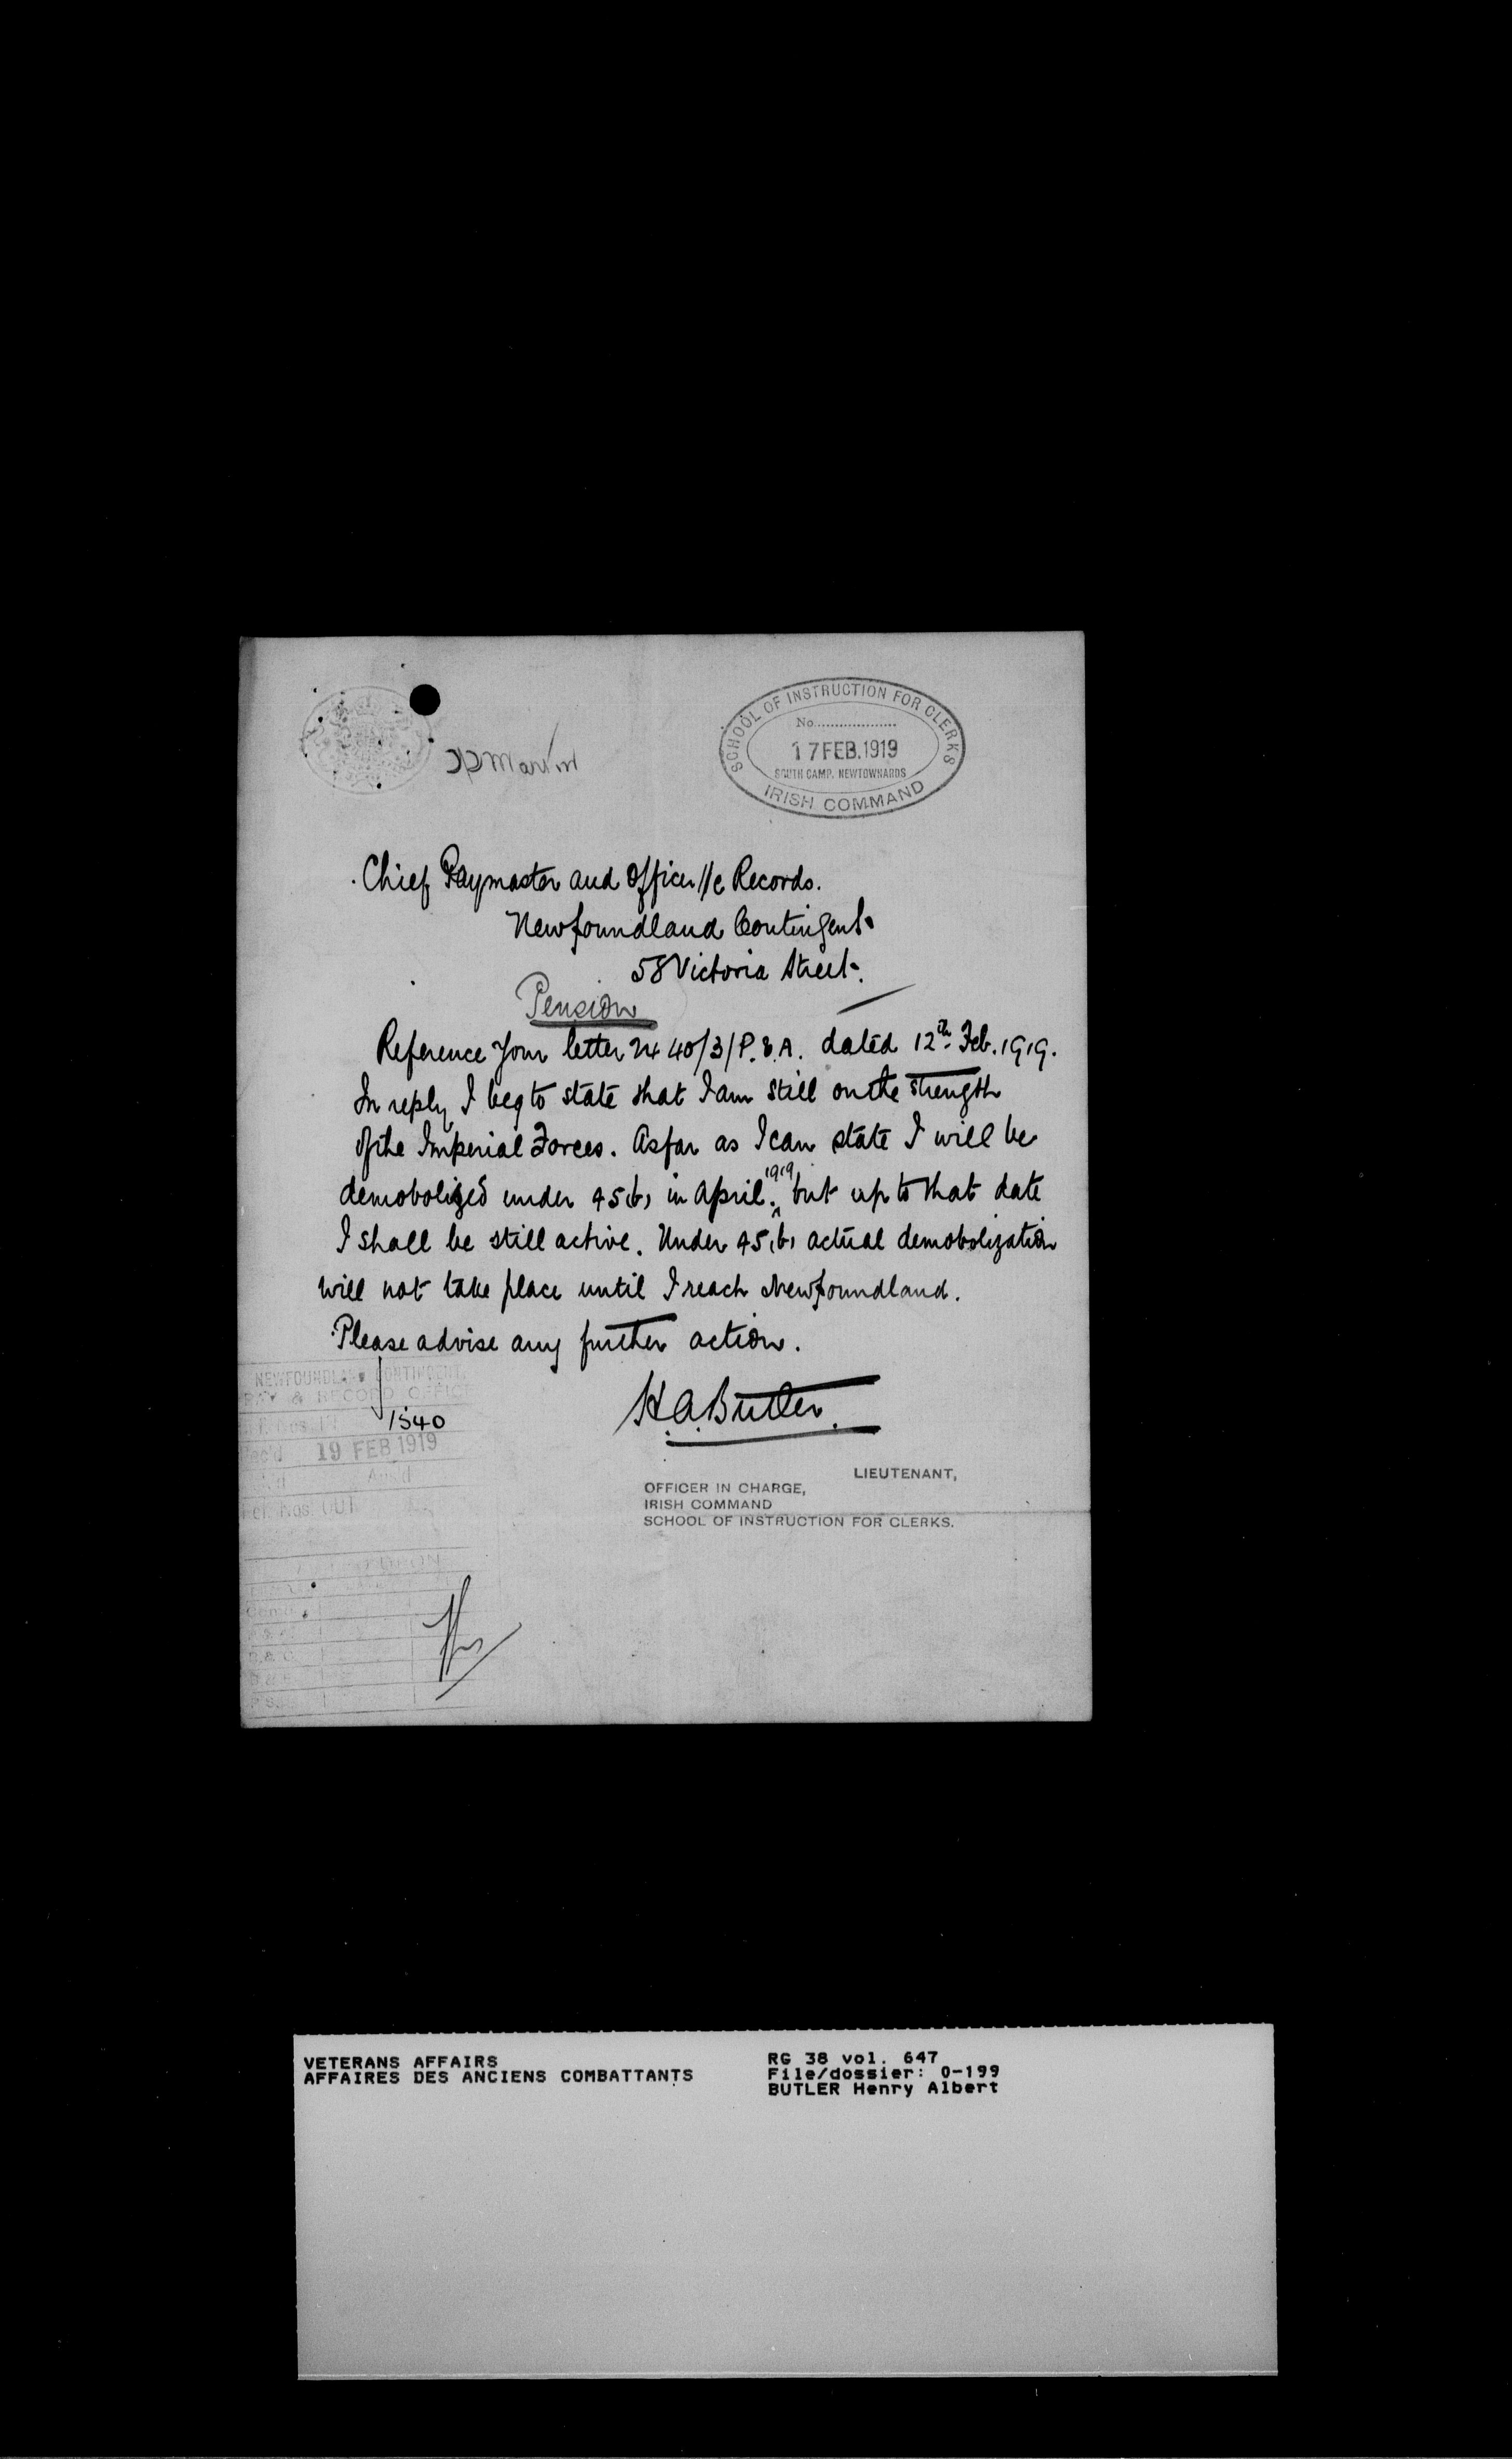 SCHOOL OF INSTRUCTION FOR CLERKS
No..................
17 FEB. 1919
SOUTH CAMP. NEWTOWNARDS
IRISH COMMAND
Chief Paymaster and Officer i/c Records.
Newfoundland Contingent.
58 Victoria Street.
Pension
Reference your letter 2440/3/P.&.A. dated 12th Feb. 1919.
In reply I beg to state that I am still on the strength
of the Imperial Forces. As far as I can state I will be
demobolized under 45(b) in April 1919, but up to that date
I shall be still active. Under 45(b) actual demobolization
will not take place until I reach Newfoundland.
Please advise any further action.
NEWFOUNDLAND CONTINGENT,
PAY & RECORD OFFICE
1540
Rec'd 19 FEB 1919
Ans'd
Ref. Nos. OUT
H.A. Butler.
LIEUTENANT,
OFFICER IN CHARGE,
IRISH COMMAND
SCHOOL OF INSTRUCTION FOR CLERKS.
VETERANS AFFAIRS
AFFAIRES DES ANCIENS COMBATTANTS
RG 38 vol. 647
File/dossier: 0-199
BUTLER Henry Albert